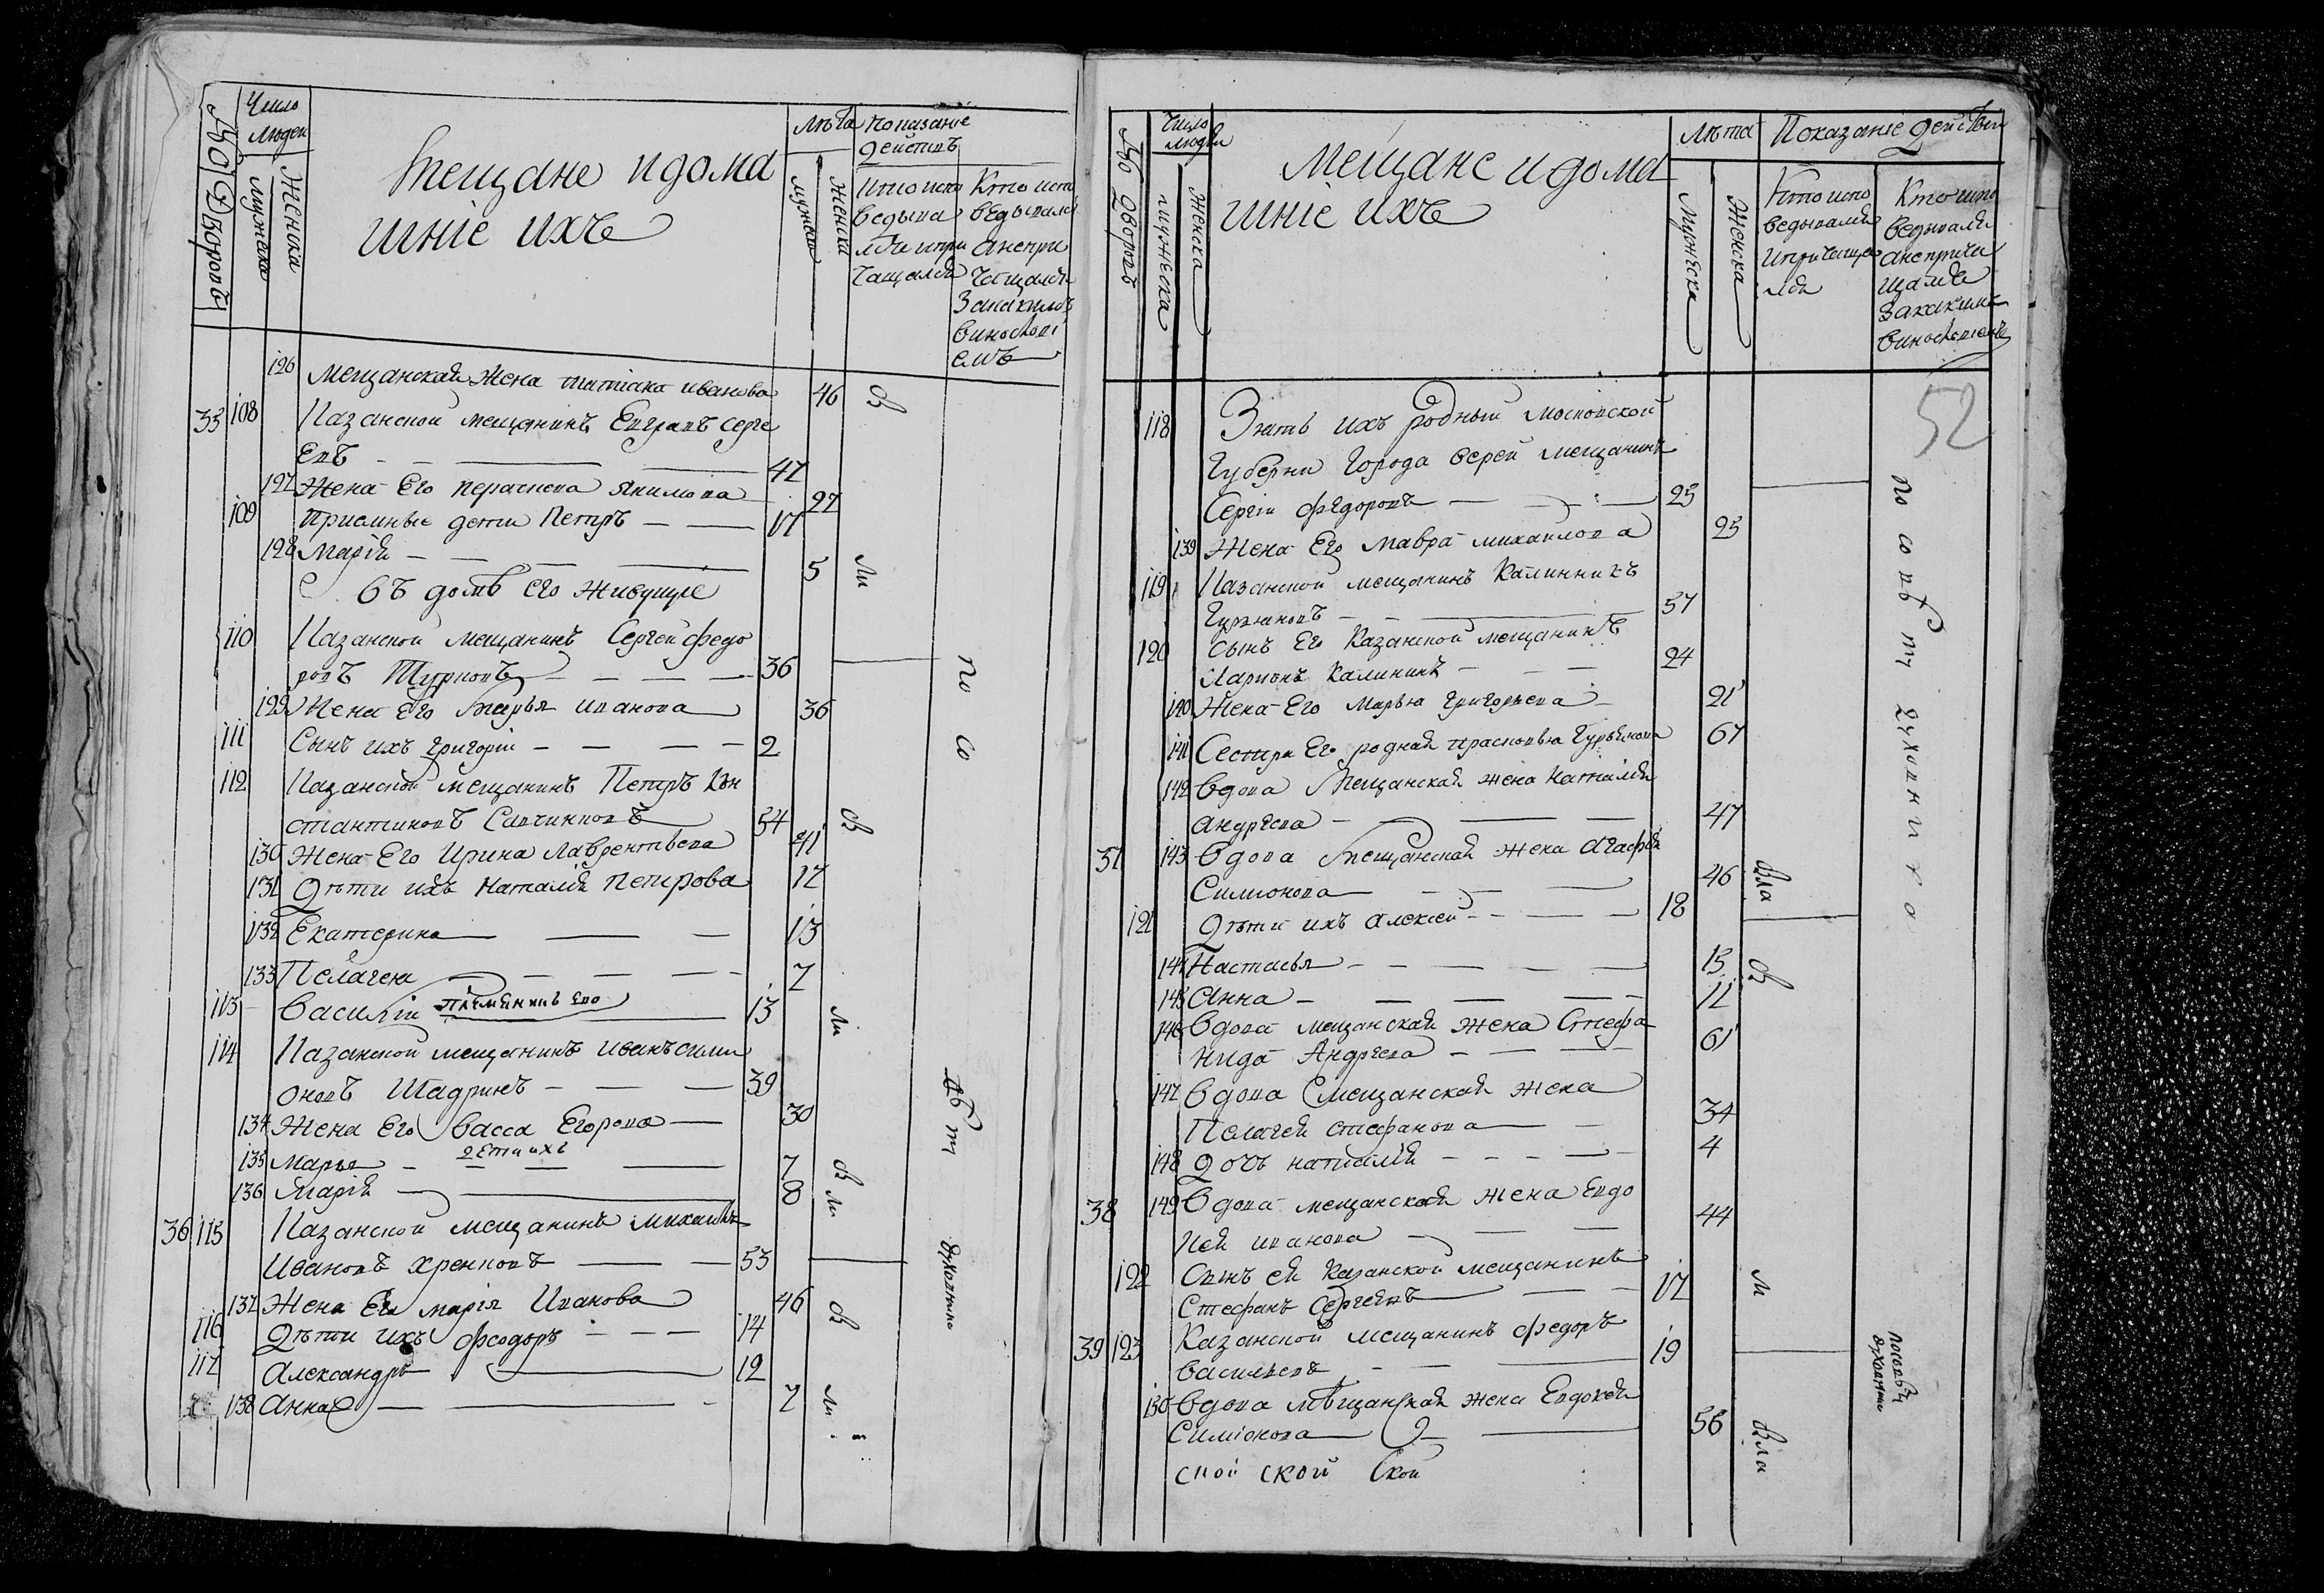 Число
людеи
Дворовъ
мужеска
Женска
Мещане и дома
шніе ихъ
Лѣта
Показаніе
действъ
мужеска
женска
Кто испо
ведыва
лся и при
чащался
Кто испо
ведывался
а непри
чащался
За какимъ
виносłові
емъ
126 Мещанская Жена татiана иванова 46
35 108 Казанской мещанинъ Евграпъ серге
евъ 47
127 Жена Его Якимова 27
109 Приемные дети Петръ 17
128 Марія 5
въ домѣ его живущіе
110 Казанской мещанинъ Сергеи федо
ровъ 36
129 Жена Его Марья иванова 36
111 Сынъ ихъ григоріи 2
112 Казанской мещанинъ Петръ Кон
стантиновъ 54
130 Жена Его Ирина Лаврентьева 41
131 Дѣти ихъ Наталія Петрова 17
132 Екатерина 13
133 Пелагея 7
113 Василіи племянникъ его 13
114 Казанской мещанинъ иванъ сими
оновъ Шадринъ 39
134 Жена Его Васса Егорова 30
135 Марья дети ихъ 7
136 Марія 8
36 115 Казанской мещанинъ михаилъ
Ивановъ хреновъ 53
137 Жена Его марія Иванова 46
116 Дѣти ихъ феодоръ 14
117 Александръ 12
138 Анна 7
въ
ли
по
со
вѣ
ту
духовника
Число
людеи
Дворовъ
мужеска
женска
Мещане и дома
шніе ихъ
Лѣта
Показаніе действіи
Мужеска
Женска
Кто испо
ведывался
и причаща
лся
Кто испо
ведывался
а неприча
щался
За какимъ
52
118 Зять ихъ родный московской
Губерни Города вереи мещанинъ
Сергіи федоровъ 25
139 Жена Его мавра михаилова 25
119 Казанской мещанинъ Калинникъ
Гурьяновъ 57
120 Сынъ Его Казанской мещанинъ
Ларионъ Калининъ 24
140 Жена Его Марья григорьева 21
141 Сестра Его родная прасковья Гурьянова 67
142 Вдова Мещанская жена Наталія
андреева 47
37 143 Вдова Мещанская жена Агафія
Симионова 46
121 Дѣти ихъ алексеи 18
144 Настасья 15
145 Анна 11
146 Вдова мещанская жена Стефа
нида Андреева 61
147 Вдова мещанская жена
Пелагея стефанова 34
148 Дочь наталія 4
38 149 Вдова мещанская жена Евдо
кея иванова 44
122 Сынъ ея Казанской мещанинъ
Стефанъ Сергеевъ 17
39 123 Казанской мещанинъ федоръ
васильевъ 19
150 Вдова мѣщанская жена Евдокея
Симіонова 56
ской ской ской
по совѣту духовника